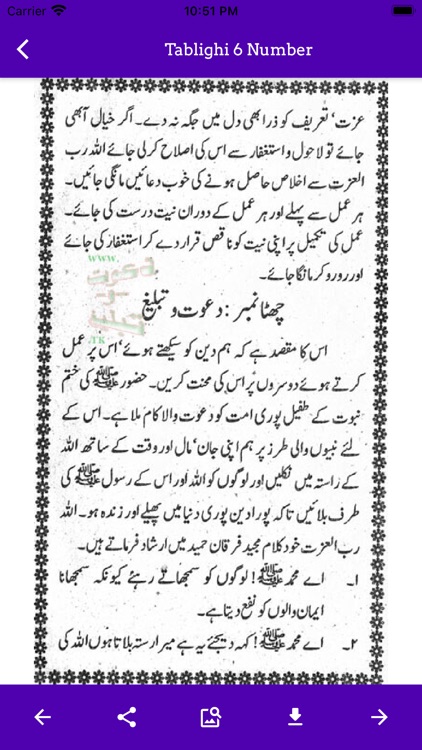 Carrier 10:51 PM
Tablighi 6 Number
عزت‘ تعریف کو ذرا بھی دل میں جگہ نہ دے۔ اگر خیال آ بھی
جائے تو لا حول و استغفار سے اس کی اصلاح کر لی جائے اللہ رب
العزت سے اخلاص حاصل ہونے کی خوب دعائیں مانگی جائیں۔
ہر عمل سے پہلے اور ہر عمل کے دوران نیت درست کی جائے۔
عمل کی تکمیل پر اپنی نیت کو ناقص قرار دے کر استغفار کی جائے
اور رو رو کر مانگا جائے۔
www.
دعوت
و
تبلیغ
.TK
چھٹا نمبر : دعوت و تبلیغ
اس کا مقصد ہے کہ ہم دین کو سیکھتے ہوئے‘ اس پر عمل
کرتے ہوئے دوسروں پر اس کی محنت کریں۔ حضور ﷺ کی ختم
نبوت کے طفیل پوری امت کو دعوت والا کام ملا ہے۔ اس کے
لئے نبیوں والی طرز پر ہم اپنی جان‘ مال اور وقت کے ساتھ اللہ
کے راستہ میں نکلیں اور لوگوں کو اللہ اور اس کے رسول ﷺ کی
طرف بلائیں تاکہ پورا دین پوری دنیا میں پھیلے اور زندہ ہو۔ اللہ
رب العزت خود کلام مجید فرقان حمید میں ارشاد فرماتے ہیں۔
۱۔ اے محمد ﷺ! لوگوں کو سمجھاتے رہئے کیونکہ سمجھانا
ایمان والوں کو نفع دیتا ہے۔
۲۔ اے محمد ﷺ! کہہ دیجئے یہ ہے میرا راستہ بلاتا ہوں اللہ کی